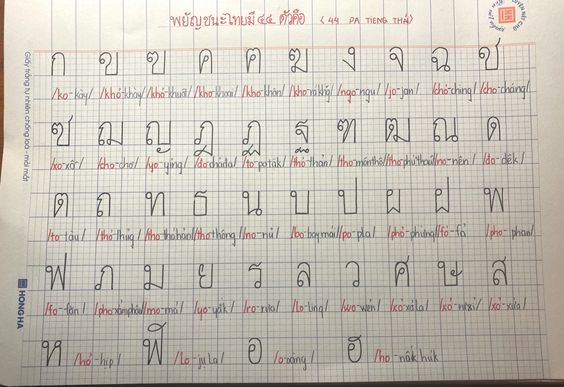 พยัญชนะไทยมี ๔๔ ตัวคือ (44 PA TIENG THÁI)
ก ข ฃ ค ฅ ฆ ง จ ฉ ช
/ko-kày/ /khỏ-khày/ /khỏ-khuất/ /kho-khoai/ /kho-khôn/ /kho-rá khăng/ /ngo-ngu/ /jo-jan/ /chỏ-chìng/ /cho-cháng/
ซ ฌ ญ ฎ ฏ ฐ ฑ ฒ ณ ด
/xo-xô/ /cho-chơ/ /yo-yỉng/ /do-cháđa/ /to-pa tăk/ /thỏ-thản/ /tho-món thô/ /tho-phú thau/ /no-nên/ /do-đêk/
ต ถ ท ธ น บ ป ผ ฝ พ
/to-tàu/ /thỏ-thủng/ /tho-thá hản/ /tho-thông/ /no-nủ/ /bo-bay mái/ /po-pla/ /phỏ-phưng/ /fỏ-fả/ /pho-phan/
ฟ ภ ม ย ร ล ว ศ ษ ส
/fo-făn/ /pho-xẳm phâu/ /mo-má/ /yo-yắk/ /ro-rưa/ /lo-ling/ /wo-wén/ /xỏ-xả la/ /xỏ-rưxỉ/ /xỏ-xửa/
ห /hỏ-hịp/ ฬ /lo-ju la/ อ /o-àng/ ฮ /ho-nôk húk/
HONG HA